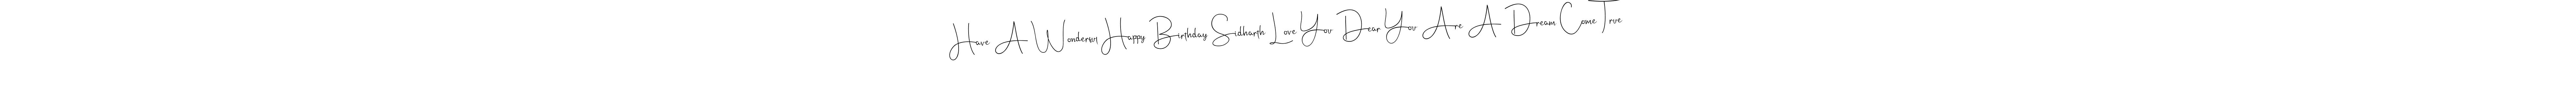 Have A Wonderful Happy Birthday Sidharth Love You Dear You Are A Dream Come True